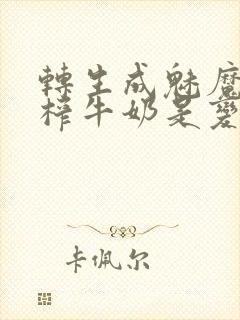 轉生成魅魔
榨牛奶是變
卡佩尔